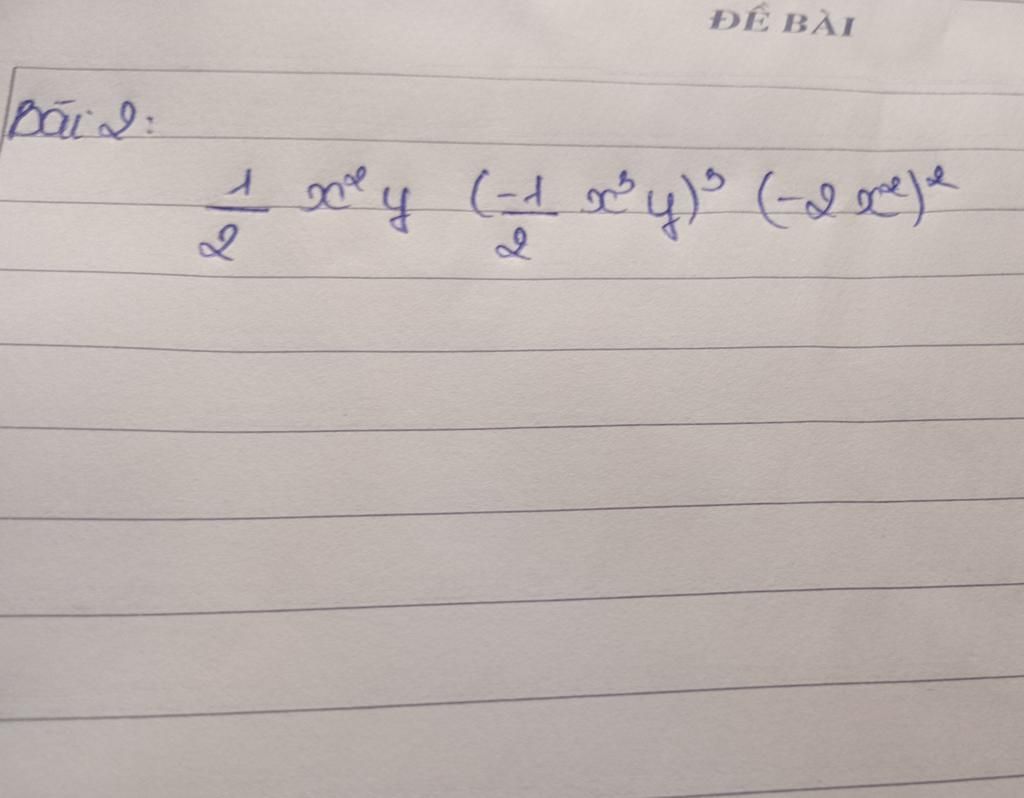 ĐỀ BÀI
Bài 2:
$\frac{1}{2} x^2 y \left(\frac{-1}{2} x^3 y\right)^3 (-2 x^2)^2$